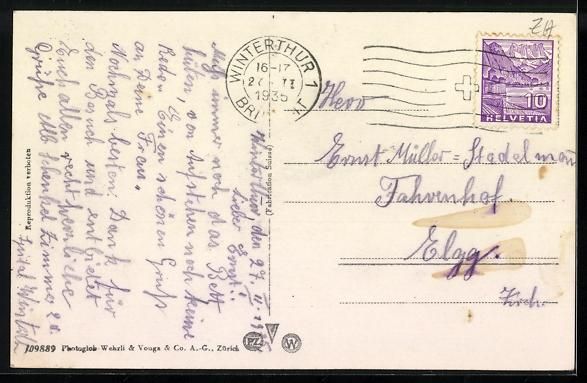 Winterthur, den 27. II. 1935
Lieber Ernst!
Muss immer noch das Bett
hüten, von Aufstehen noch keine
Rede. Einen schönen Gruss
an Deine Frau.
Nochmals besten Dank für
den Besuch und entbietet
Euch allen recht herzliche
Grüsse Alb Schenkel Zimmer 20
Spital W'thur
Reproduktion verboten
(Fabrikation Suisse)
WINTERTHUR 1
16-17
27. II
1935
ZH
10
HELVETIA
Herr
Ernst Müller-Stadelmann
Fahrenhof.
Elgg.
Kt. Zch.
109889 Photoglob-Wehrli & Vouga & Co. A.-G., Zürich
PZ
W